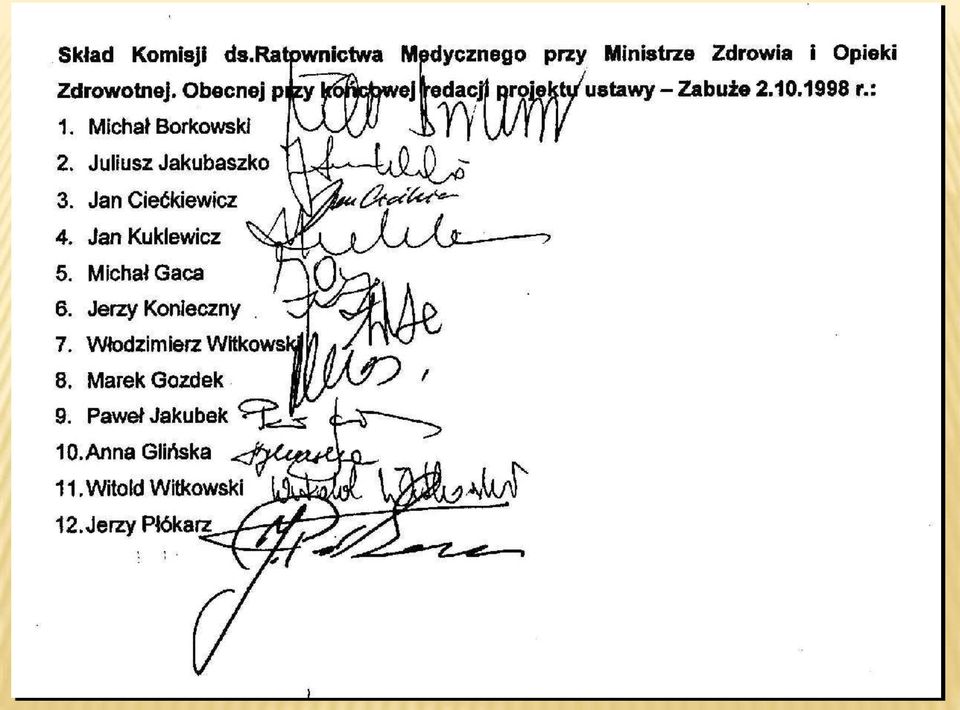 Skład Komisji ds.Ratownictwa Medycznego przy Ministrze Zdrowia i Opieki
Zdrowotnej. Obecnej przy końcowej redacji projektu ustawy – Zabuże 2.10.1998 r.:
1. Michał Borkowski
2. Juliusz Jakubaszko
3. Jan Ciećkiewicz
4. Jan Kuklewicz
5. Michał Gaca
6. Jerzy Konieczny
7. Włodzimierz Witkowski
8. Marek Gozdek
9. Paweł Jakubek
10.Anna Glińska
11.Witold Witkowski Witold Witkowski
12.Jerzy Płókarz